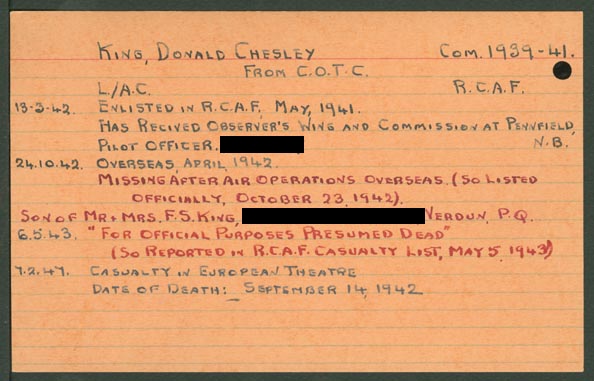 KING, DONALD CHESLEY COM. 1939-41.
FROM C.O.T.C.
L/A.C. R.C.A.F.
13-3-42. ENLISTED IN R.C.A.F., MAY, 1941.
HAS RECIVED OBSERVER'S WING AND COMMISSION AT PENNFIELD,
PILOT OFFICER. N.B.
24.10.42. OVERSEAS, APRIL, 1942.
MISSING AFTER AIR OPERATIONS OVERSEAS. (SO LISTED
OFFICIALLY, OCTOBER 23, 1942).
SON OF MR + MRS. F.S. KING, VERDUN, P.Q.
6.5.43. "FOR OFFICIAL PURPOSES PRESUMED DEAD"
(SO REPORTED IN R.C.A.F. CASUALTY LIST, MAY 5, 1943)
7.2.47. CASUALTY IN EUROPEAN THEATRE
DATE OF DEATH: _ SEPTEMBER 14, 1942